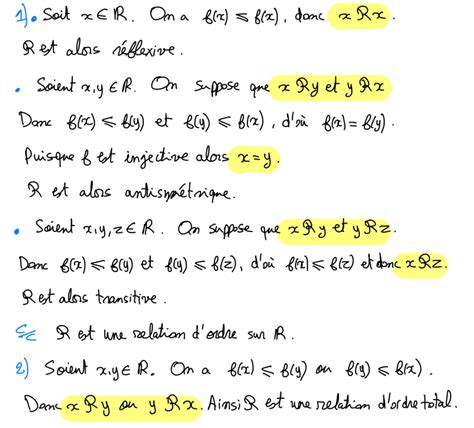 1) • Soit x ∈ ℝ. On a f(x) ⩽ f(x), donc x ℛ x.
ℛ est alors réflexive.
• Soient x,y ∈ ℝ. On suppose que x ℛ y et y ℛ x
Donc f(x) ⩽ f(y) et f(y) ⩽ f(x), d'où f(x) = f(y).
Puisque f est injective alors x = y.
ℛ est alors antisymétrique.
• Soient x,y,z ∈ ℝ. On suppose que x ℛ y et y ℛ z.
Donc f(x) ⩽ f(y) et f(y) ⩽ f(z), d'où f(x) ⩽ f(z) et donc x ℛ z.
ℛ est alors transitive.
C/C ℛ est une relation d'ordre sur ℝ.
2) Soient x,y ∈ ℝ. On a f(x) ⩽ f(y) ou f(y) ⩽ f(x).
Donc x ℛ y ou y ℛ x. Ainsi ℛ est une relation d'ordre total.